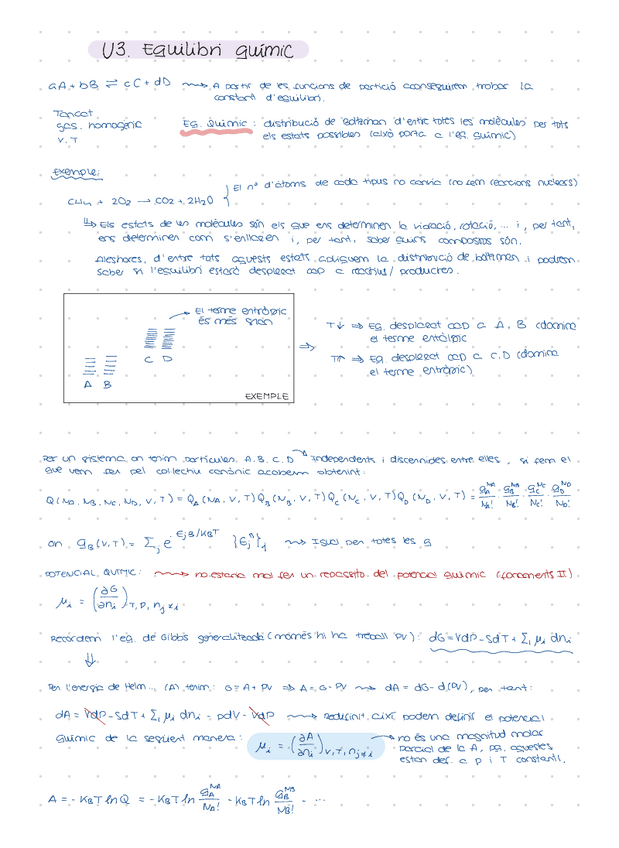 U3. Equilibri químic
aA + bB ⇌ cC + dD ⟿ A partir de les funcions de partició aconseguirem trobar la
constant d'equilibri.
Tancat
gas homogeni
V, T
Eq. Químic: distribució de Boltzman d'entre totes les molècules per tots
els estats possibles (això porta a l'eq. químic)
Exemple:
CH₄ + 2O₂ → CO₂ + 2H₂O } El nº d'àtoms de cada tipus no canvia (no son reaccions nuclears)
↳ Els estats de les molècules són els que ens determinen la vibració, rotació, ... i, per tant,
ens determinen com s'enllacen i, per tant, saber quins compostos són.
Aleshores, d'entre tots aquests estats, apliquem la distribució de Boltzman i podrem
saber si l'equilibri estarà desplaçat cap a reactius / productes.
El terme entròpic
és més gran
A B C D
EXEMPLE
⇒
T↓ ⇒ Eq. desplaçat cap a A, B (domina
el terme entàlpic
T↑ ⇒ Eq. desplaçat cap a C, D (domina
el terme entròpic)
Per un sistema on tenim partícules A, B, C, D independents i discernides entre elles, si fem el
que vem fer pel collectiu canònic acabem obtenint:
Q(N_A, N_B, N_C, N_D, V, T) = Q_A(N_A, V, T) Q_B(N_B, V, T) Q_C(N_C, V, T) Q_D(N_D, V, T) = q_A^{N_A}/N_A! · q_B^{N_B}/N_B! · q_C^{N_C}/N_C! · q_D^{N_D}/N_D!
on q_B(V, T) = Σ_j e^{-ε_jB/K_BT} ⟿ Igual per totes les q
POTENCIAL QUÍMIC: ⟿ no estaria mal fer un repassito del potencial químic (fonaments II)
μ_i = (∂G/∂n_i)_{T, P, n_j≠i}
Recordem l'eq. de Gibbs generalitzada (només hi ha treball PV): dG = VdP - SdT + Σ_i μ_i dn_i
⇓
Per l'energia de Helm... (A) tenim: G = A + PV ⇒ A = G - PV ⟿ dA = dG - d(PV), per tant:
dA = VdP - SdT + Σ_i μ_i dn_i - pdV - VdP ⟿ Redefinit així podem definir el potencial
químic de la següent manera: μ_i = (∂A/∂n_i)_{V, T, n_j≠i}
no és una magnitud molar
parcial de la A, pq. aquestes
estan def. a p i T constants.
A = - K_B T ln Q = - K_B T ln q_A^{N_A}/N_A! - K_B T ln q_B^{N_B}/N_B! - ...